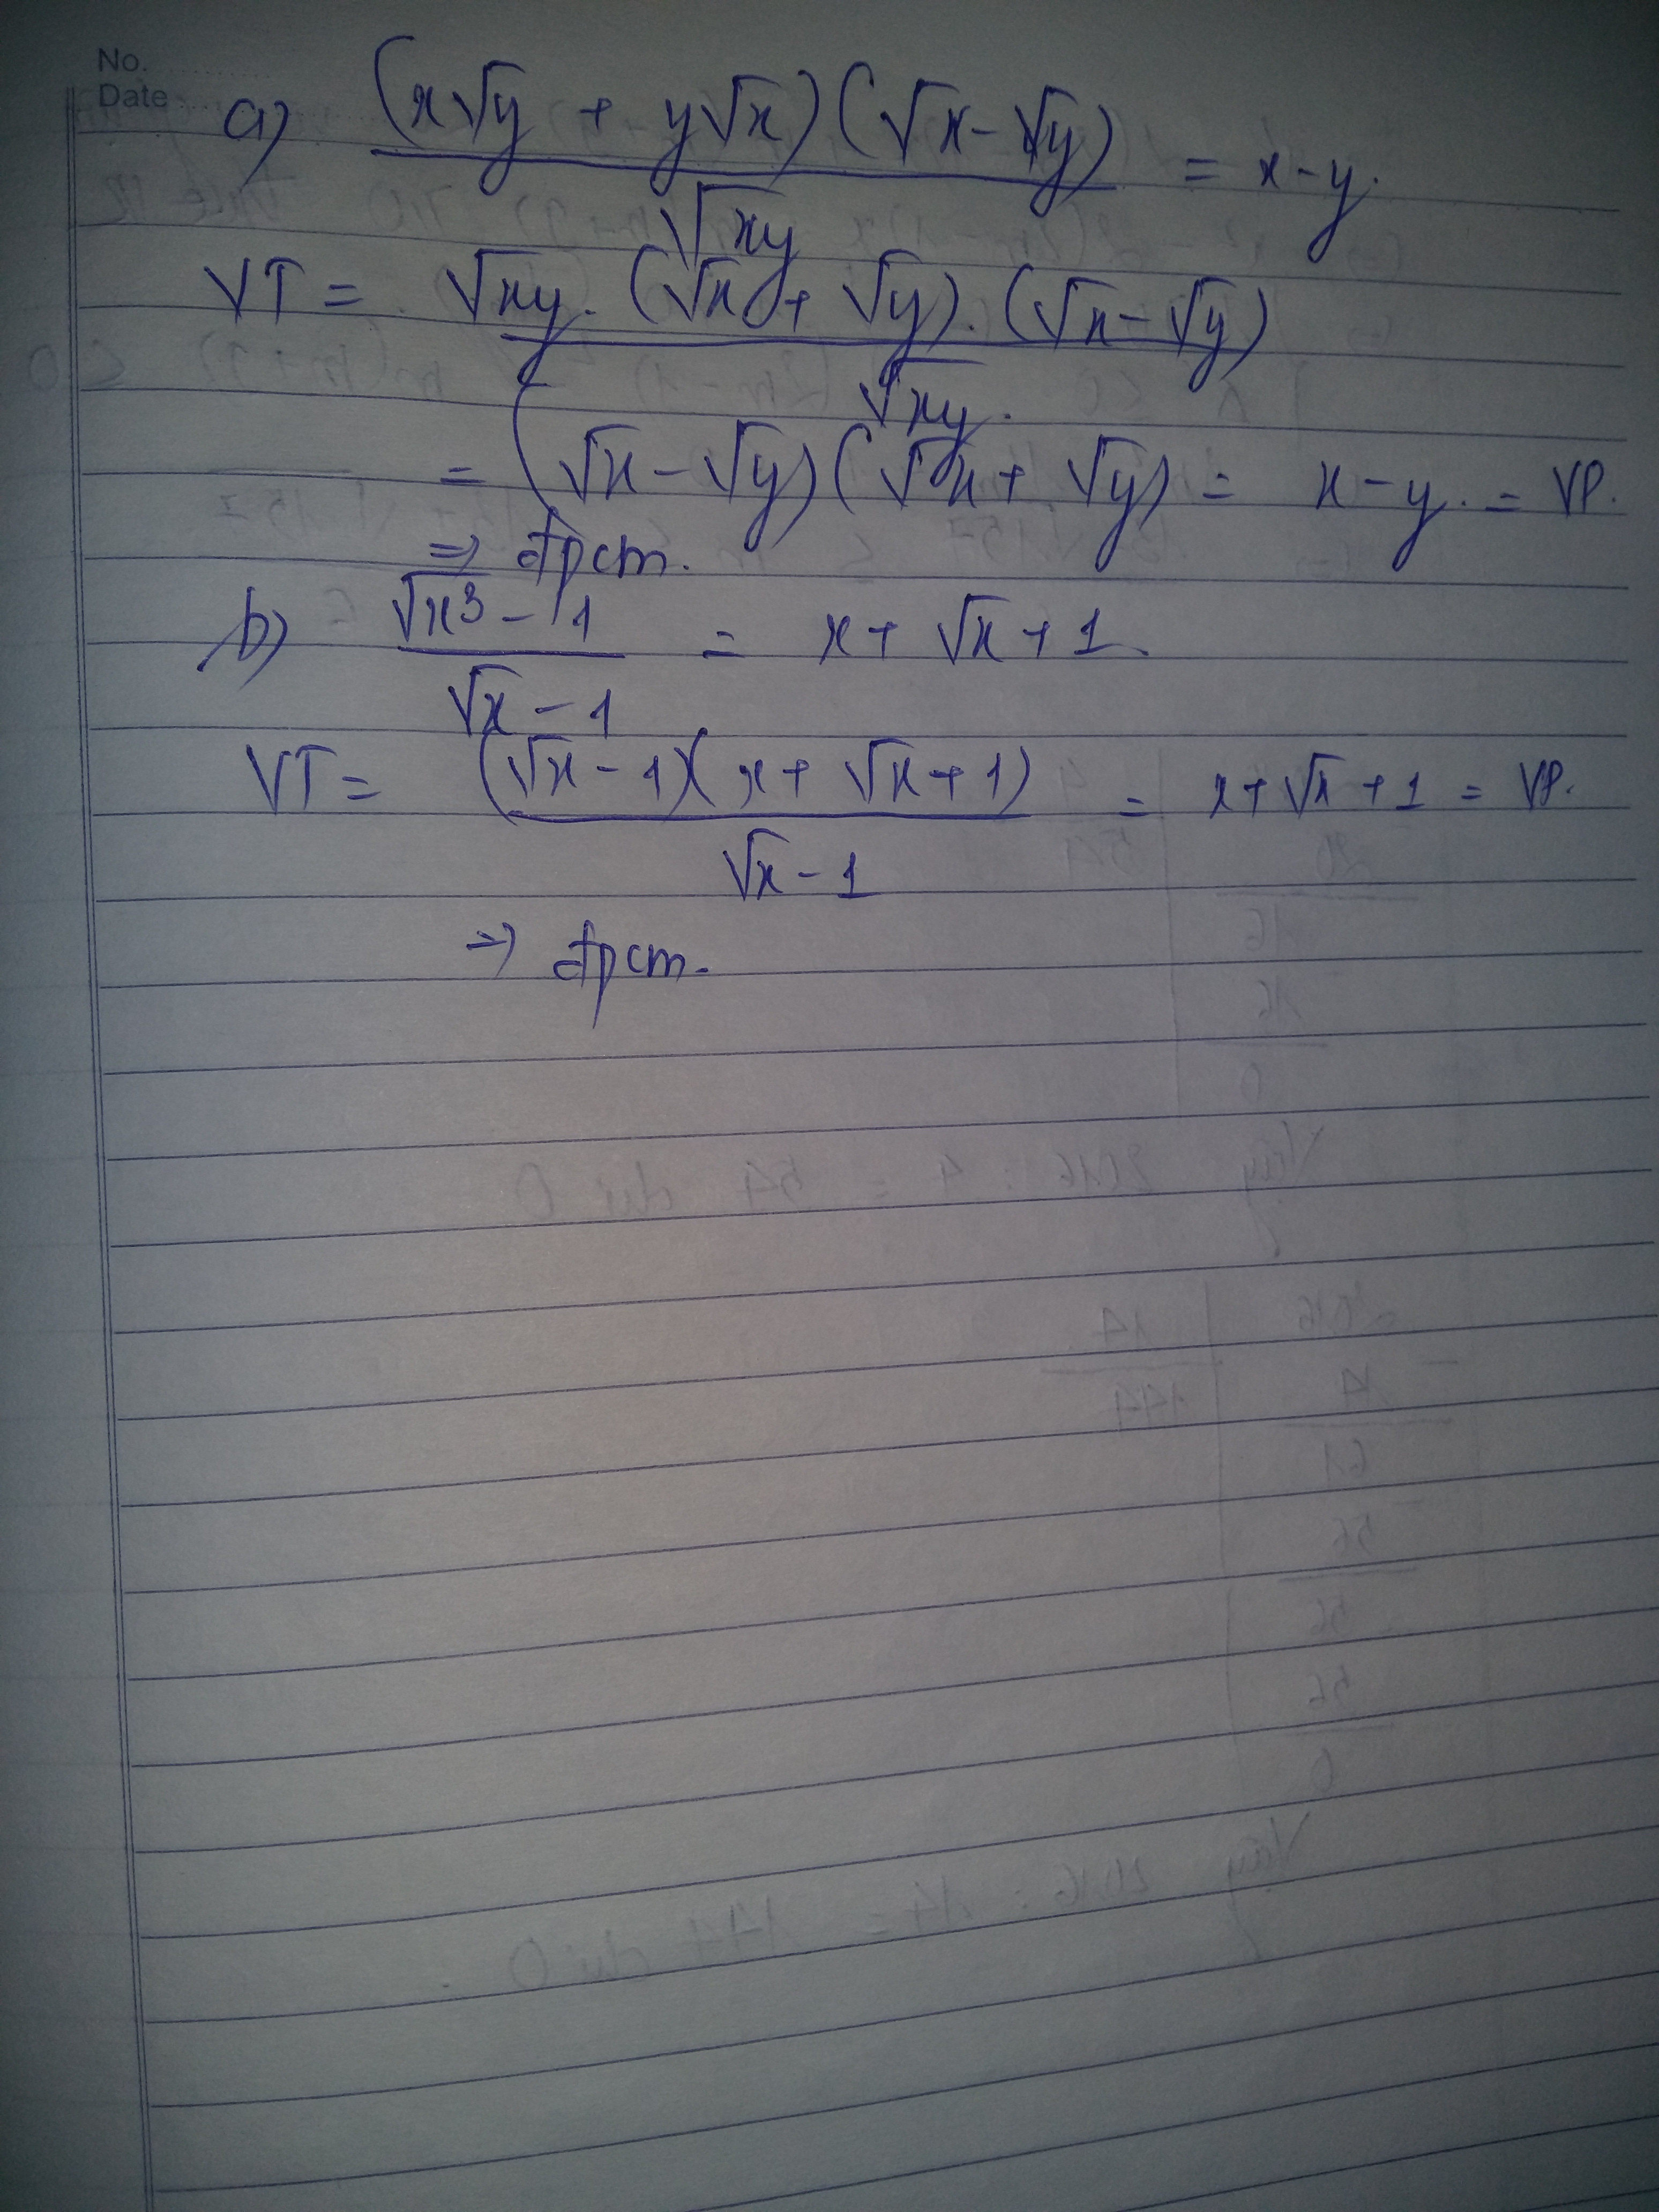 No.
Date
a) (x√y + y√x)(√x - √y) / √xy = x - y.
VT = √xy. (√x + √y). (√x - √y) / √xy.
= (√x - √y)(√x + √y) = x - y. = VP.
=> đpcm.
b) √x³ - 1 / √x - 1 = x + √x + 1.
VT = (√x - 1)(x + √x + 1) / √x - 1 = x + √x + 1 = VP.
=> đpcm.